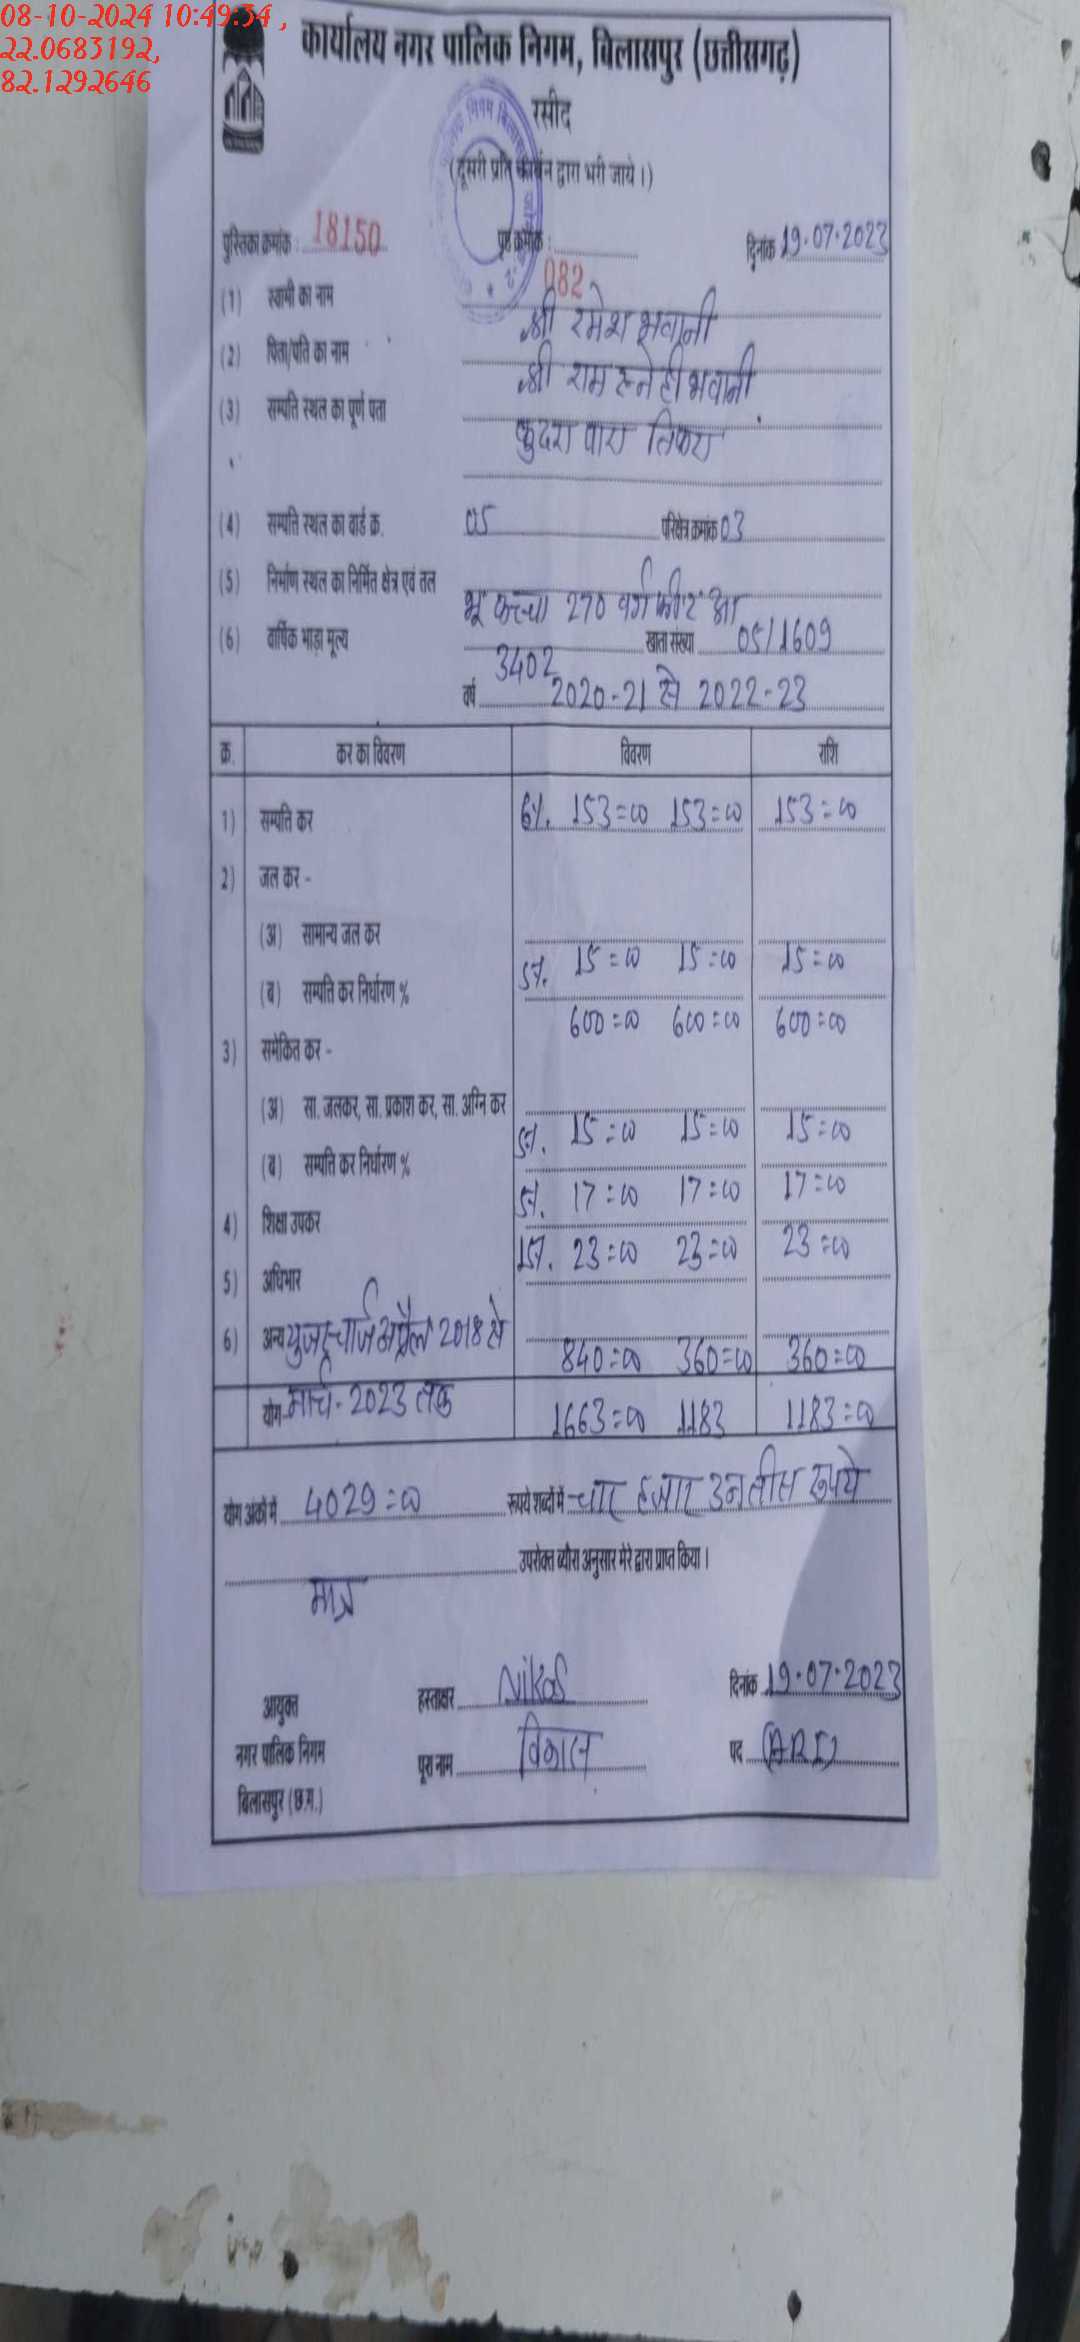 08-10-2024 10:49:34 ,
22.0683192,
82.1292646
कार्यालय नगर पालिक निगम, बिलासपुर (छत्तीसगढ़)
रसीद
(दूसरी प्रति कार्बन द्वारा भरी जाये।)
पुस्तिका क्रमांक : 18150 पृष्ठ क्रमांक : 082 दिनांक 19.07.2023
(1) स्वामी का नाम श्री रमेश भवानी
(2) पिता/पति का नाम श्री राम स्नेही भवानी
(3) सम्पति स्थल का पूर्ण पता कुदरा पारा तिफरा
(4) सम्पति स्थल का वार्ड क्र. 05 परिक्षेत्र क्रमांक 03
(5) निर्माण स्थल का निर्मित क्षेत्र एवं तल भू कच्चा 270 वर्ग फीट
(6) वार्षिक भाड़ा मूल्य 3402 खाता संख्या 05/1609
वर्ष 2020-21 से 2022-23
क्र. कर का विवरण विवरण राशि
1) सम्पति कर 6%. 153=00 153=00 153=00
2) जल कर -
(अ) सामान्य जल कर
(ब) सम्पति कर निर्धारण % 5%. 15=00 15=00 15=00
3) समेकित कर - 600=00 600=00 600=00
(अ) सा. जलकर, सा. प्रकाश कर, सा. अग्नि कर
(ब) सम्पति कर निर्धारण % 5%. 15=00 15=00 15=00
4) शिक्षा उपकर 5%. 17=00 17=00 17=00
5) अधिभार 15%. 23=00 23=00 23=00
6) अन्य युजर चार्ज अप्रैल 2018 से 840=00 360=00 360=00
योग मार्च-2023 तक 1663=00 1183 1183=00
योग अंको में 4029=00 रूपये शब्दों में चार हजार उनतीस रूपये
मात्र उपरोक्त ब्यौरा अनुसार मेरे द्वारा प्राप्त किया।
आयुक्त हस्ताक्षर दिनांक 19.07.2023
नगर पालिक निगम पूरा नाम विकास पद (ARI)
बिलासपुर (छ.ग.)